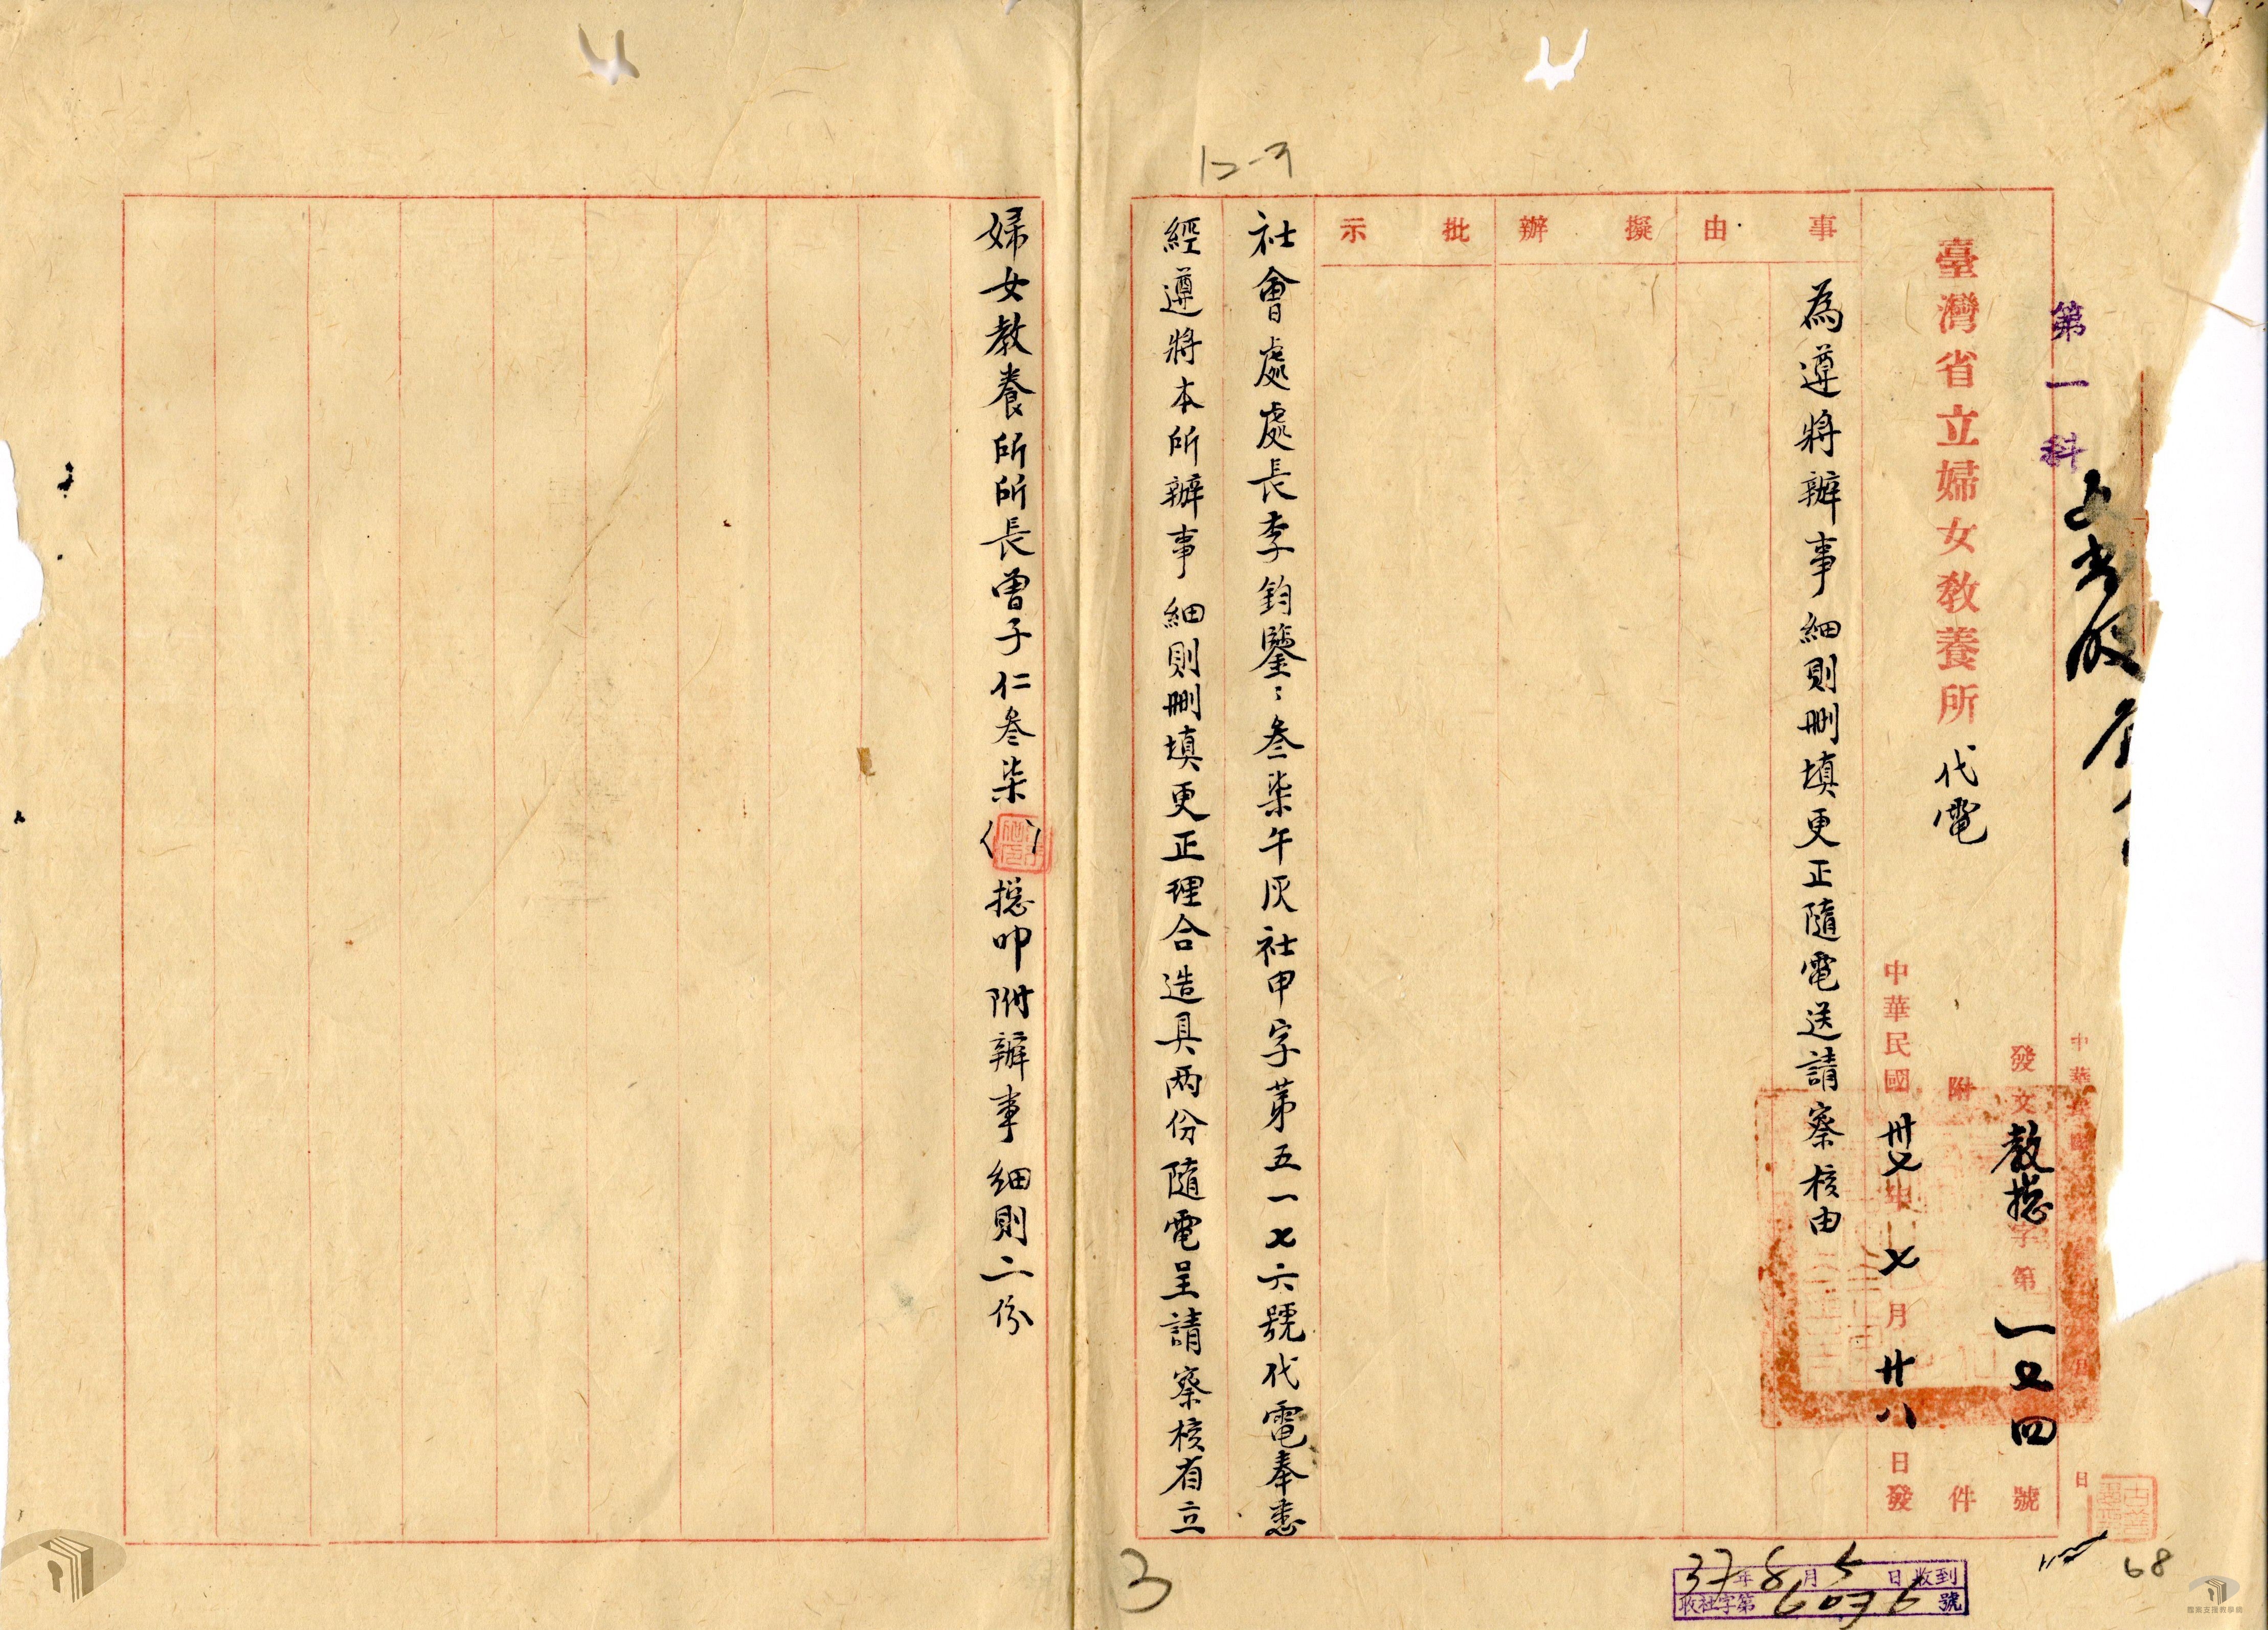 12-3
第一科
發文教總字第一又四號
附件
臺灣省立婦女教養所代電
中華民國卅七年七月廿八日發
事由
為遵將辦事細則刪填更正隨電送請察核由
擬辦
批示
社會處處長李鈞鑒：叁柒午灰社甲字第五一七六號代電奉悉
經遵將本所辦事細則刪填更正理合造具两份隨電呈請察核省立
婦女教養所所長曾子仁叁柒（）總叩附辦事細則二份
37年8月5日收到
收社字第6036號
68
3